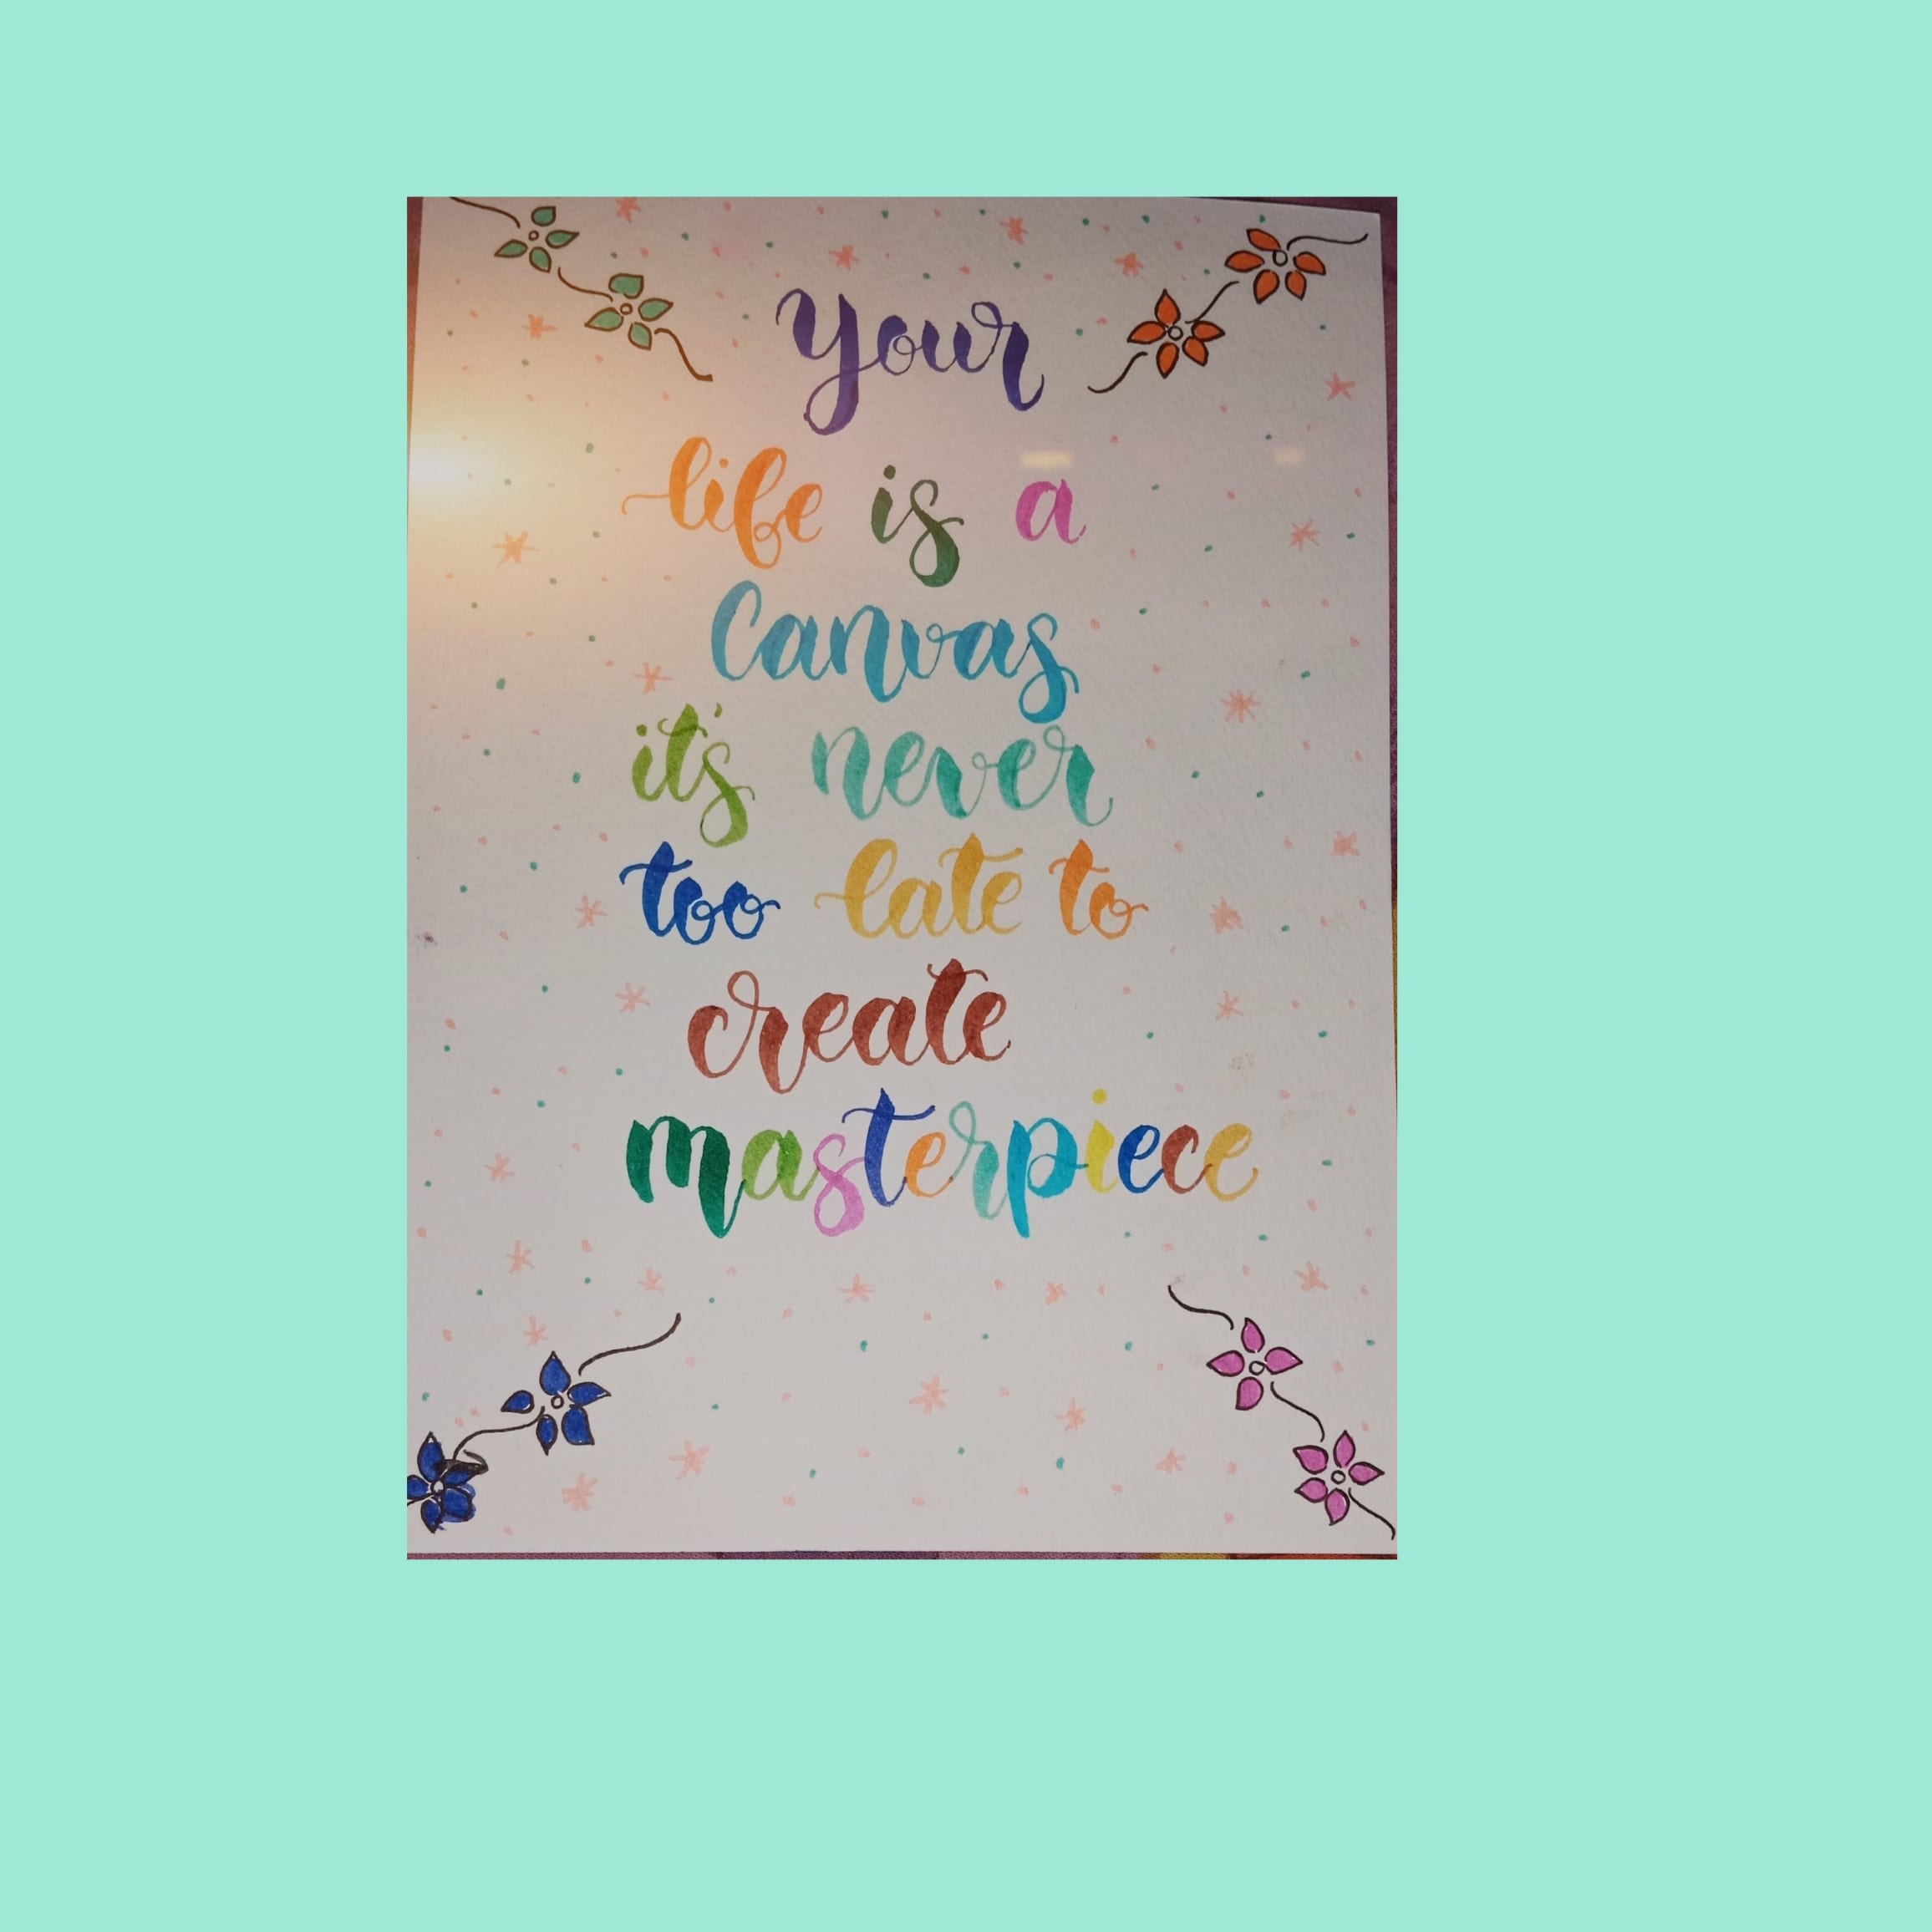 your
life is a
Canvas
it's never
too late to
create
masterpiece